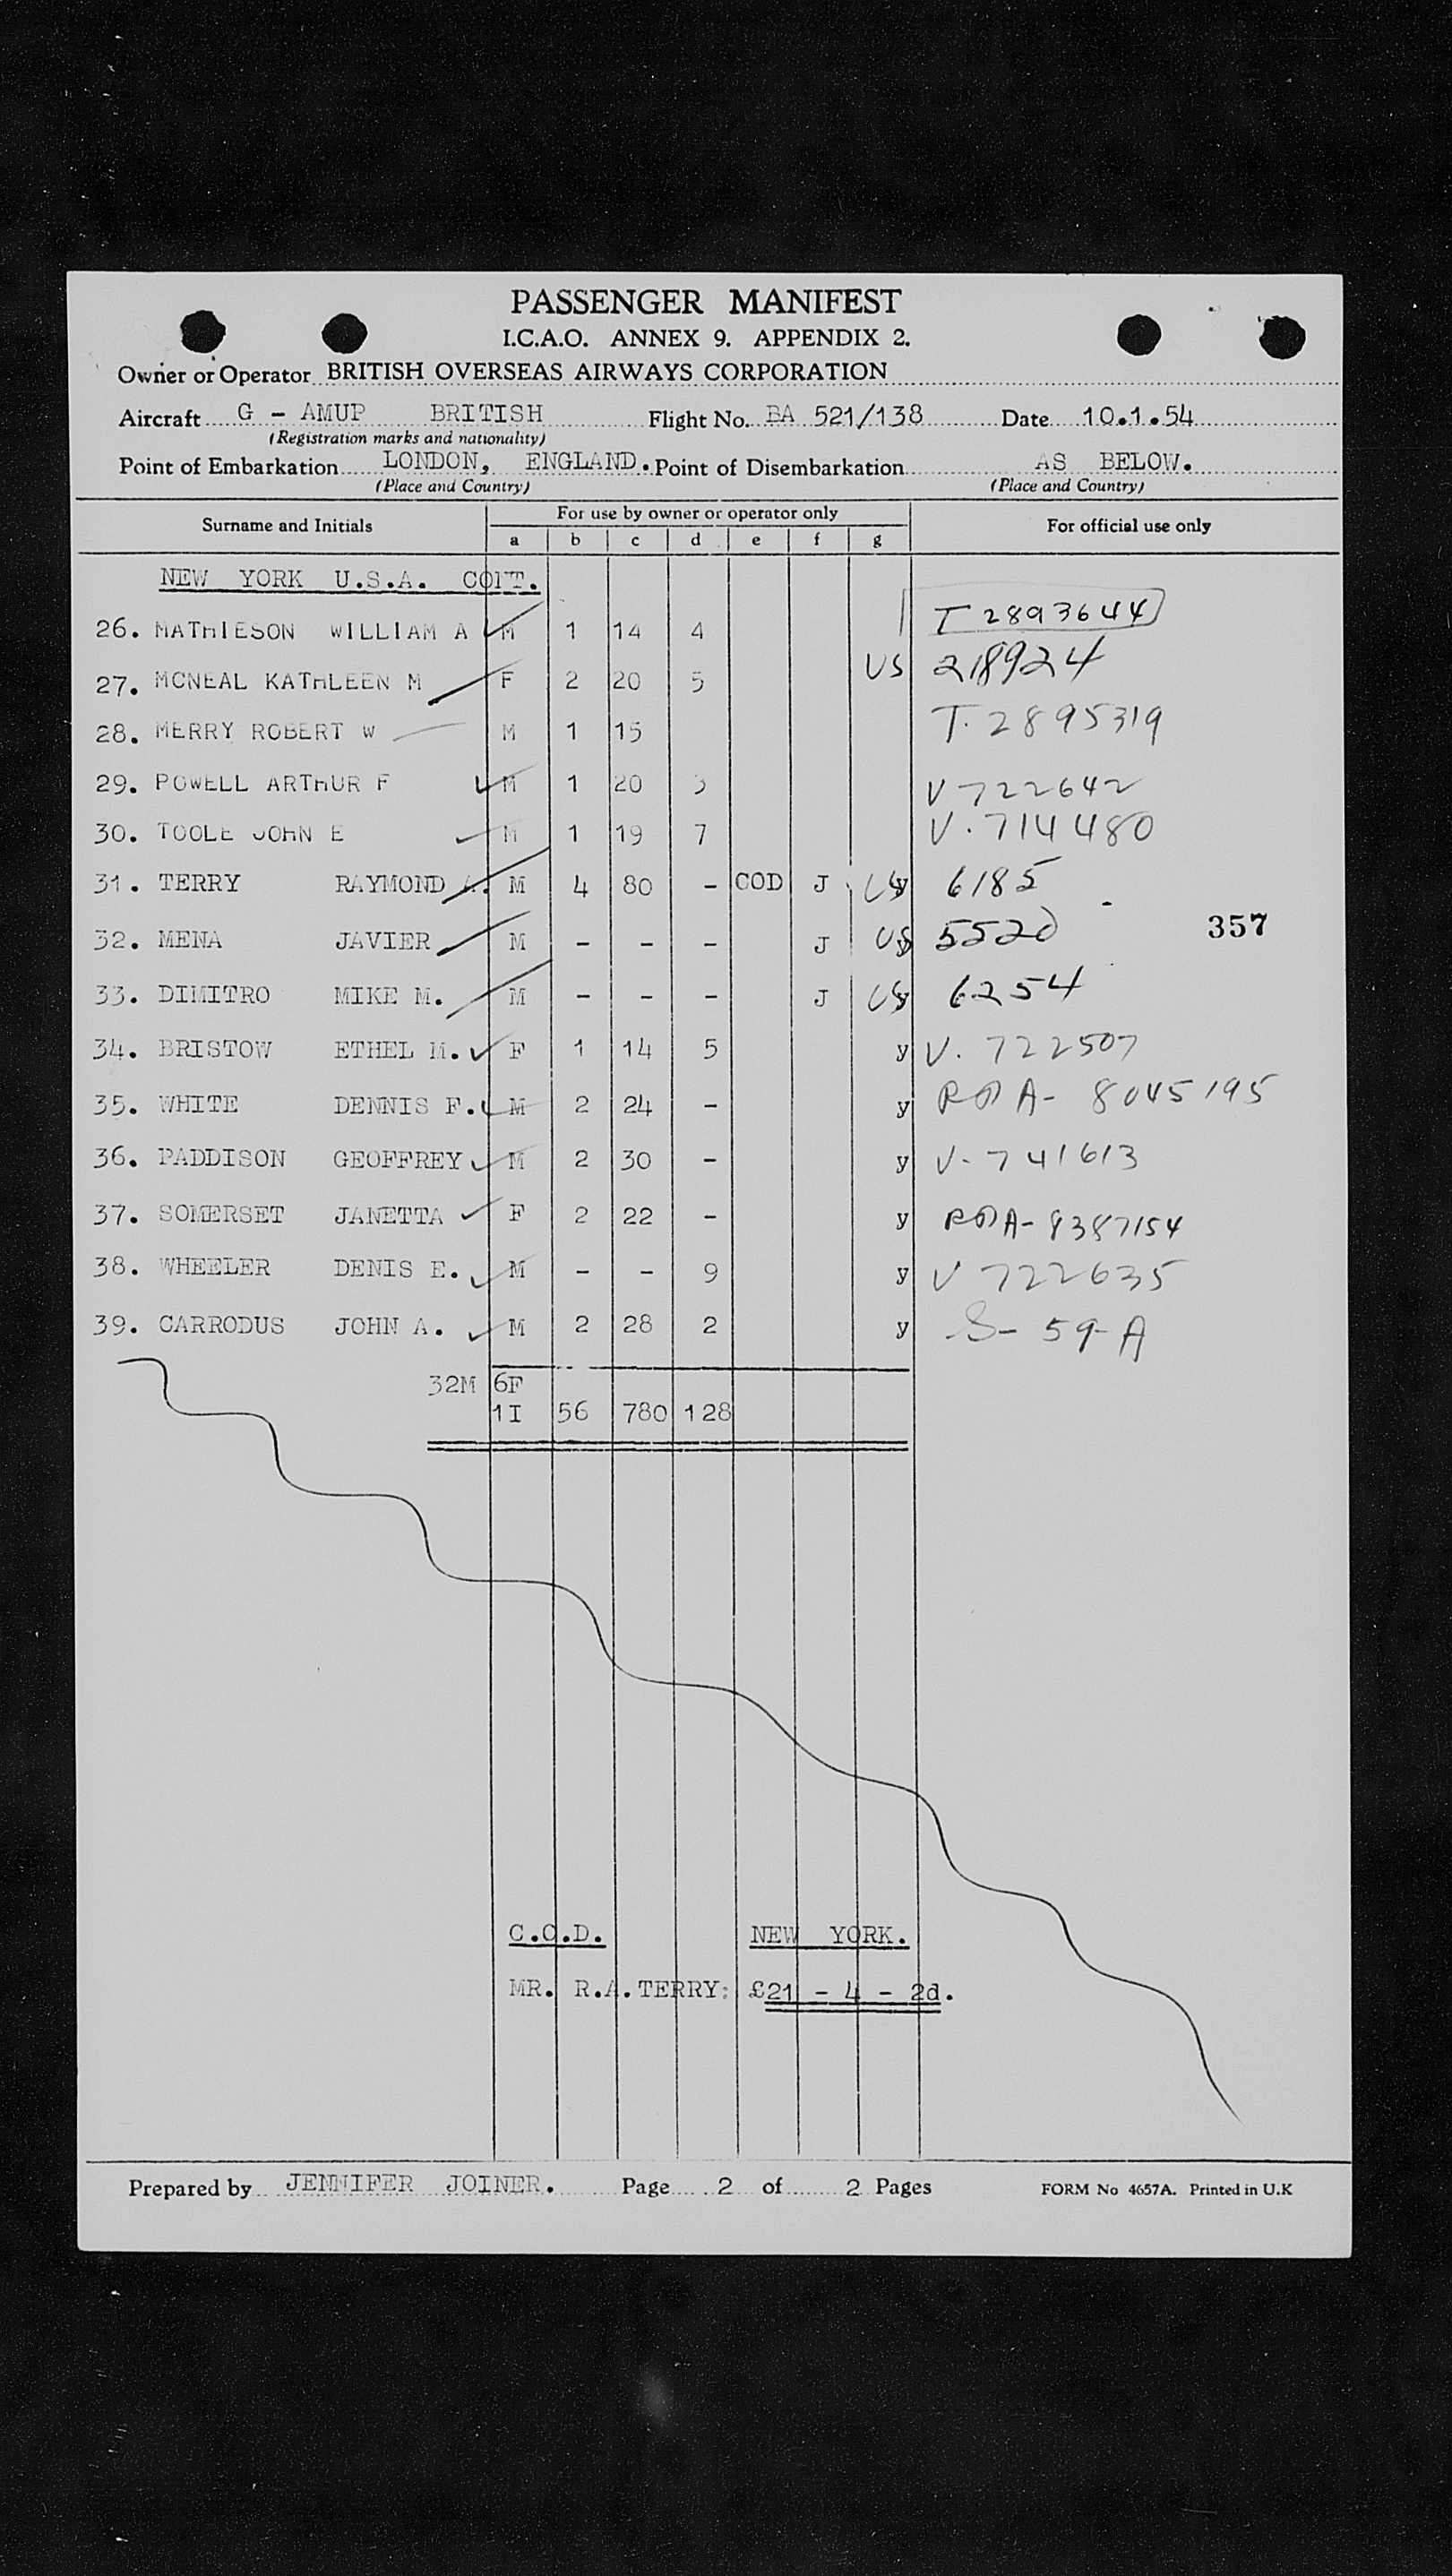 PASSENGER MANIFEST
I.C.A.O. ANNEX 9. APPENDIX 2.
Owner or Operator BRITISH OVERSEAS AIRWAYS CORPORATION
Aircraft G - AMUP BRITISH Flight No. BA 521/138 Date 10.1.54
(Registration marks and nationality)
Point of Embarkation LONDON, ENGLAND. Point of Disembarkation AS BELOW.
(Place and Country) (Place and Country)
Surname and Initials For use by owner or operator only For official use only
a b c d e f g
NEW YORK U.S.A. CONT.
26. MATHIESON WILLIAM A M 1 14 4 T 2893644
27. MCNEAL KATHLEEN M F 2 20 5 US 218924
28. MERRY ROBERT W M 1 15 T. 2895319
29. POWELL ARTHUR F M 1 20 V 722642
30. TOOLE JOHN E M 1 19 7 V. 714480
31. TERRY RAYMOND A. M 4 80 - COD J US y 6185
32. MENA JAVIER M - - - J US 5520
357
33. DIMITRO MIKE M. M - - - J US y 6254
34. BRISTOW ETHEL M. F 1 14 5 y V. 722507
35. WHITE DENNIS F. M 2 24 - y A- 8045195
36. PADDISON GEOFFREY M 2 30 - y V- 741613
37. SOMERSET JANETTA F 2 22 - y A- 8387154
38. WHEELER DENIS E. M - - 9 y V 722635
39. CARRODUS JOHN A. M 2 28 2 y S- 59-A
32M 6F
1I 56 780 128
C.O.D. NEW YORK.
MR. R.A.TERRY: £21 - 4 - 2d.
Prepared by JENNIFER JOINER. Page 2 of 2 Pages FORM No 4657A. Printed in U.K